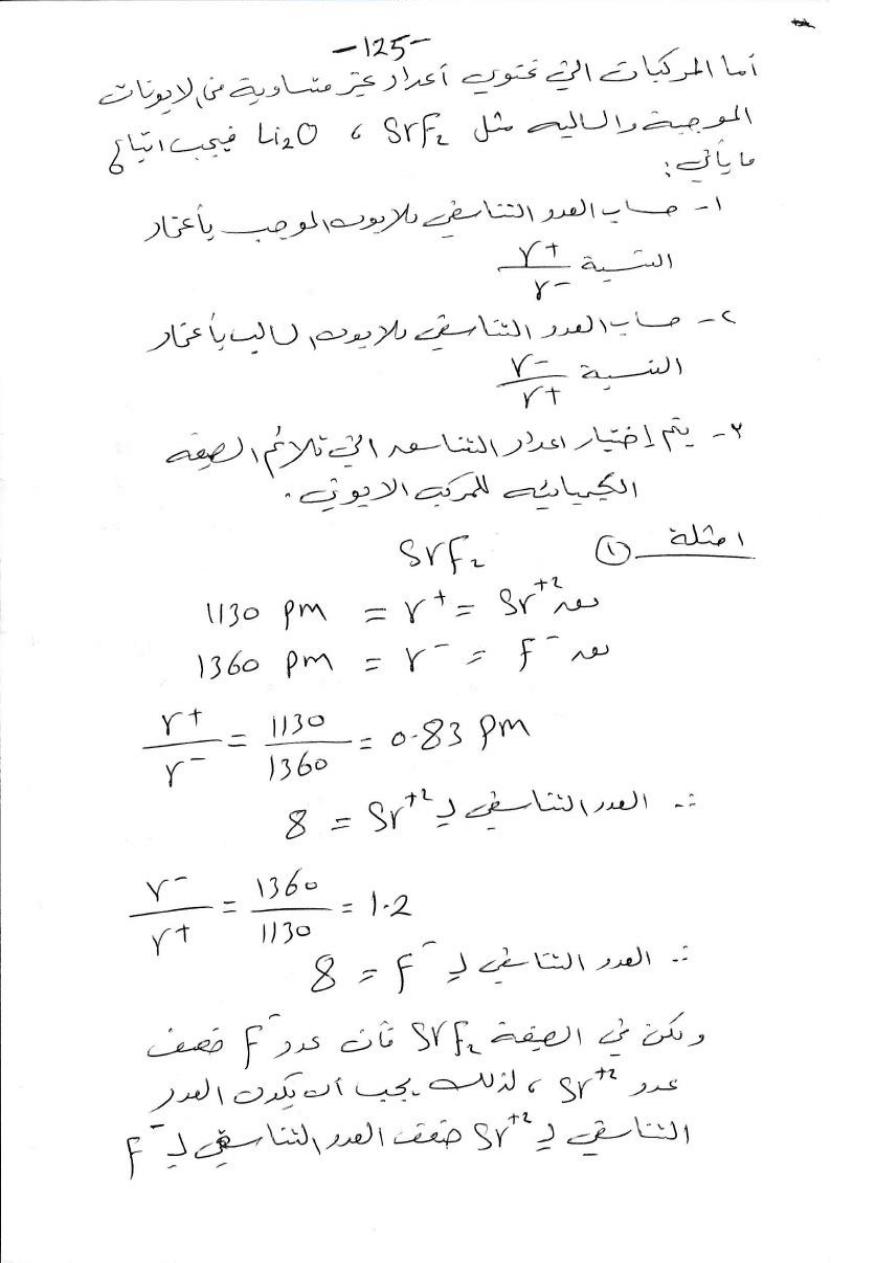 -125-
أما المركبات التي تحتوي أعداد غير متساوية من الايونات
الموجبة والسالبه مثل SrF₂ ، Li₂O فيجب اتباع
ما يأتي:
١- حساب العدد التناسقي للايون الموجب بأعتماد
النسبة r+/r-
٢- حساب العدد التناسقي للايون السالب بأعتماد
النسبة r-/r+
٣- يتم إختيار اعداد التناسق التي تلائم الصيغه
الكيميائيه للمركب الايوني.
امثلة ① SrF₂
نق Sr⁺² = r⁺ = 1130 pm
نق F⁻ = r⁻ = 1360 pm
r+/r- = 1130/1360 = 0.83 pm
∴ العدد التناسقي لـ Sr⁺² = 8
r-/r+ = 1360/1130 = 1.2
∴ العدد التناسقي لـ F⁻ = 8
ولكن في الصيغة SrF₂ فأن عدد F⁻ ضعف
عدد Sr⁺² ، لذلك يجب أن يكون العدد
التناسقي لـ Sr⁺² ضعف العدد التناسقي لـ F⁻